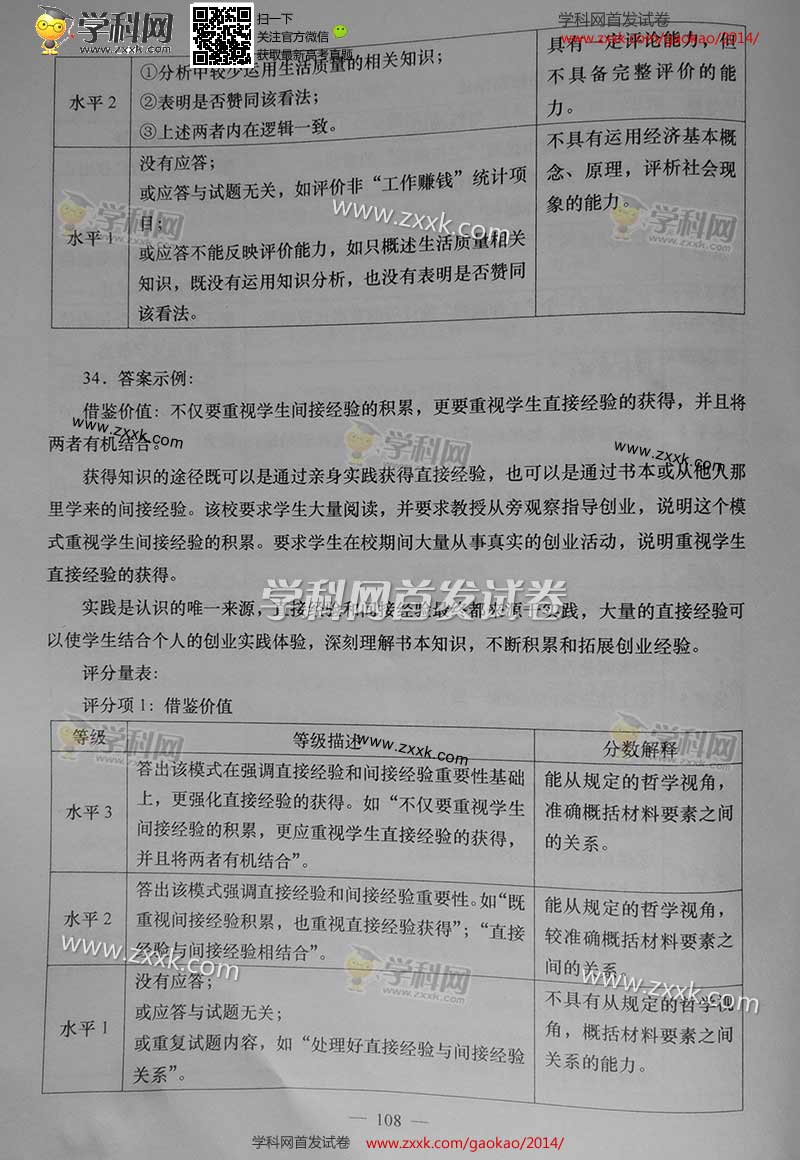 学科网
www.zxxk.com
扫一下
关注官方微信
获取最新高考真题
学科网首发试卷
www.zxxk.com/gaokao/2014/
水平2
①分析中较少运用生活质量的相关知识;
②表明是否赞同该看法;
③上述两者内在逻辑一致。
具有一定评论能力,但
不具备完整评价的能
力。
水平1
没有应答;
或应答与试题无关,如评价非“工作赚钱”统计项
目;
或应答不能反映评价能力,如只概述生活质量相关
知识,既没有运用知识分析,也没有表明是否赞同
该看法。
不具有运用经济基本概
念、原理,评析社会现
象的能力。
34.答案示例:
借鉴价值:不仅要重视学生间接经验的积累,更要重视学生直接经验的获得,并且将
两者有机结合。
获得知识的途径既可以是通过亲身实践获得直接经验,也可以是通过书本或从他人那
里学来的间接经验。该校要求学生大量阅读,并要求教授从旁观察指导创业,说明这个模
式重视学生间接经验的积累。要求学生在校期间大量从事真实的创业活动,说明重视学生
直接经验的获得。
学科网首发试卷
实践是认识的唯一来源,直接经验和间接经验最终都来源于实践,大量的直接经验可
以使学生结合个人的创业实践体验,深刻理解书本知识,不断积累和拓展创业经验。
评分量表:
评分项1:借鉴价值
等级
等级描述
分数解释
水平3
答出该模式在强调直接经验和间接经验重要性基础
上,更强化直接经验的获得。如“不仅要重视学生
间接经验的积累,更应重视学生直接经验的获得,
并且将两者有机结合”。
能从规定的哲学视角,
准确概括材料要素之间
的关系。
水平2
答出该模式强调直接经验和间接经验重要性。如“既
重视间接经验积累,也重视直接经验获得”;“直接
经验与间接经验相结合”。
能从规定的哲学视角,
较准确概括材料要素之
间的关系。
水平1
没有应答;
或应答与试题无关;
或重复试题内容,如“处理好直接经验与间接经验
关系”。
不具有从规定的哲学视
角,概括材料要素之间
关系的能力。
— 108 —
学科网首发试卷
www.zxxk.com/gaokao/2014/